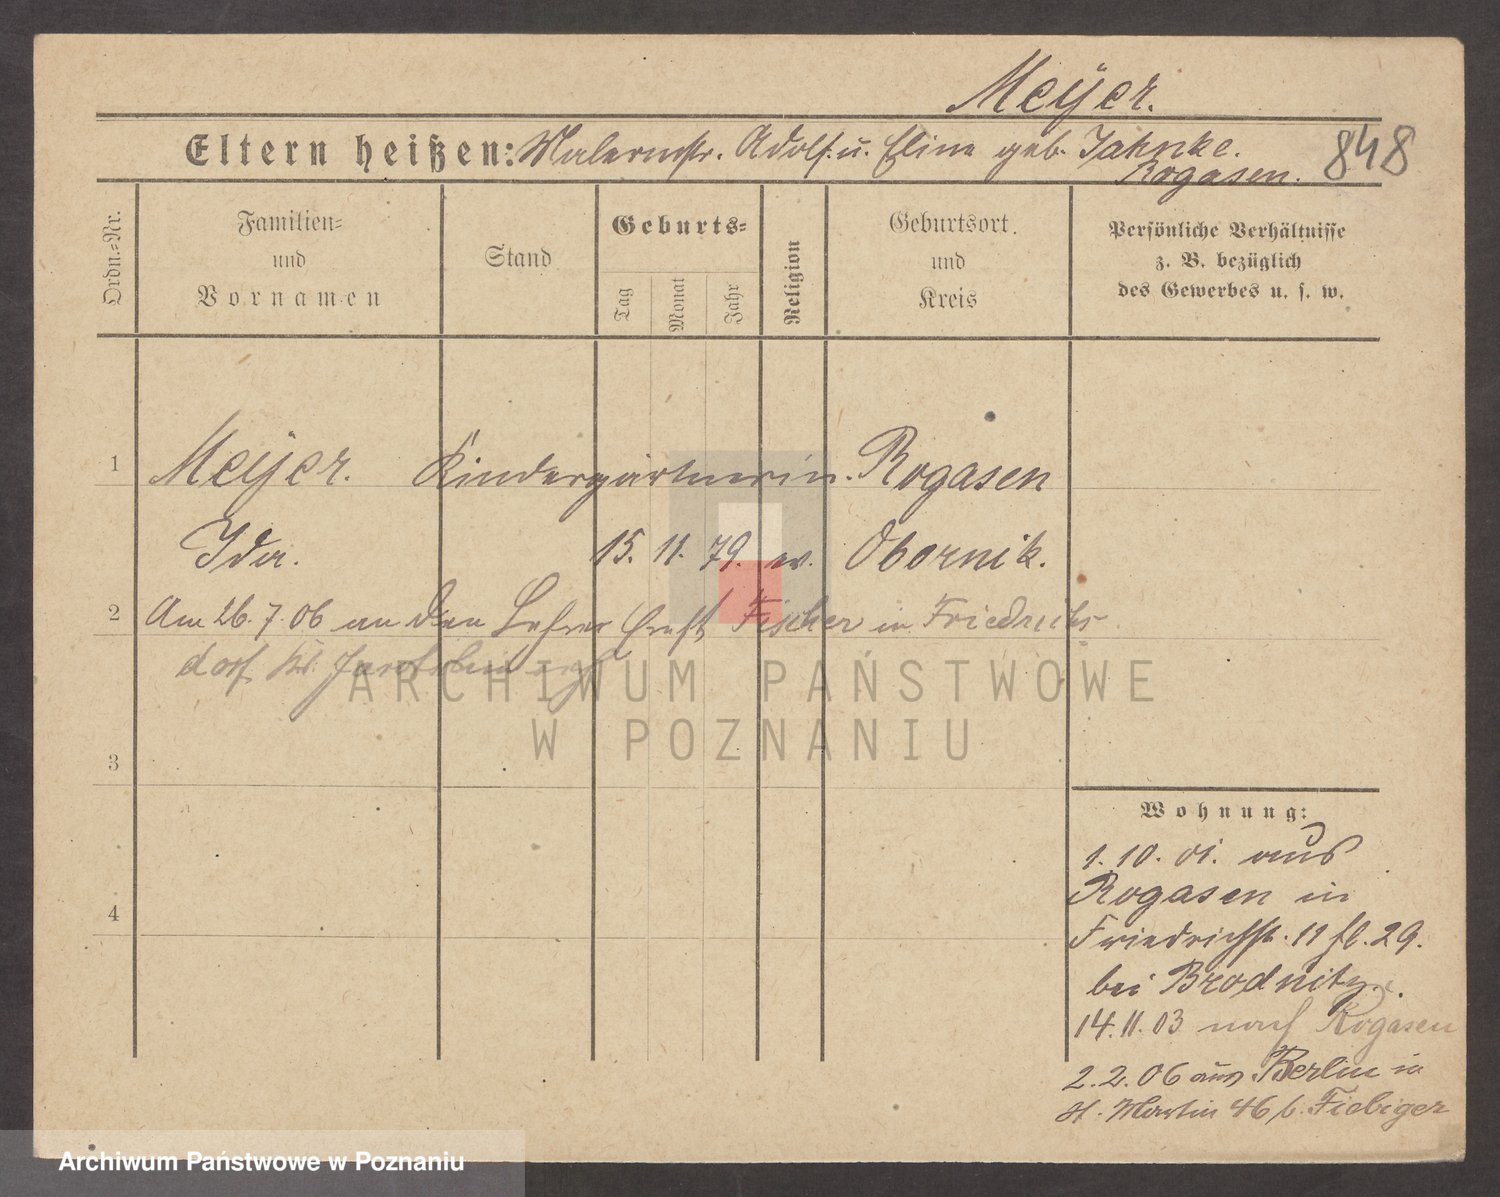 Meÿer.
Eltern heißen: Malermstr. Adolf u. Eline geb. Jahnke.
Rogasen.
848
Ordn.-Nr.
Familien-
und
Vornamen
Stand
Geburts-
Tag
Monat
Jahr
Religion
Geburtsort
und
Kreis
Persönliche Verhältnisse
z. B. bezüglich
des Gewerbes u. s. w.
1
Meÿer. Kindergärtnerin. Rogasen
Ida. 15. 11. 79. ev. Obornik.
2
Am 26.7.06 an den Lehrer Ernst Fischer in
dorf Kr.
3
4
Wohnung:
1.10.01. aus
Rogasen in
Friedrichstr. 11 fl. 29.
bei Brodnitz.
14.11.03 nach Rogasen
2.2.06 aus Berlin in
St. Martin 46 b. Fiebiger
ARCHIWUM PAŃSTWOWE
W POZNANIU
Archiwum Państwowe w Poznaniu